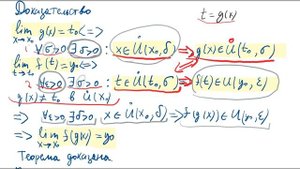 Доказательство
t = g(x)
lim g(x) = t₀ <=>
x→x₀
∀σ>0 ∃δ>0: x∈U̇(x₀,δ) => g(x)∈U̇(t₀,σ)
lim f(t) = y₀ <=>
t→t₀
∀ε>0 ∃σ>0: t∈U̇(t₀,σ) => f(t)∈U(y₀,ε)
g(x) ≠ t₀ в U̇(x₀)
=> ∀ε>0 ∃δ>0, x∈U̇(x₀,δ) => f(g(x))∈U(y₀,ε)
<=> lim f(g(x)) = y₀
x→x₀
Теорема доказана